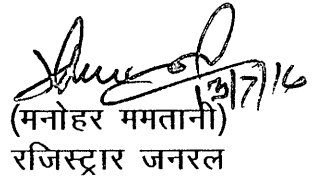 13/7/16
(मनोहर ममतानी)
रजिस्ट्रार जनरल